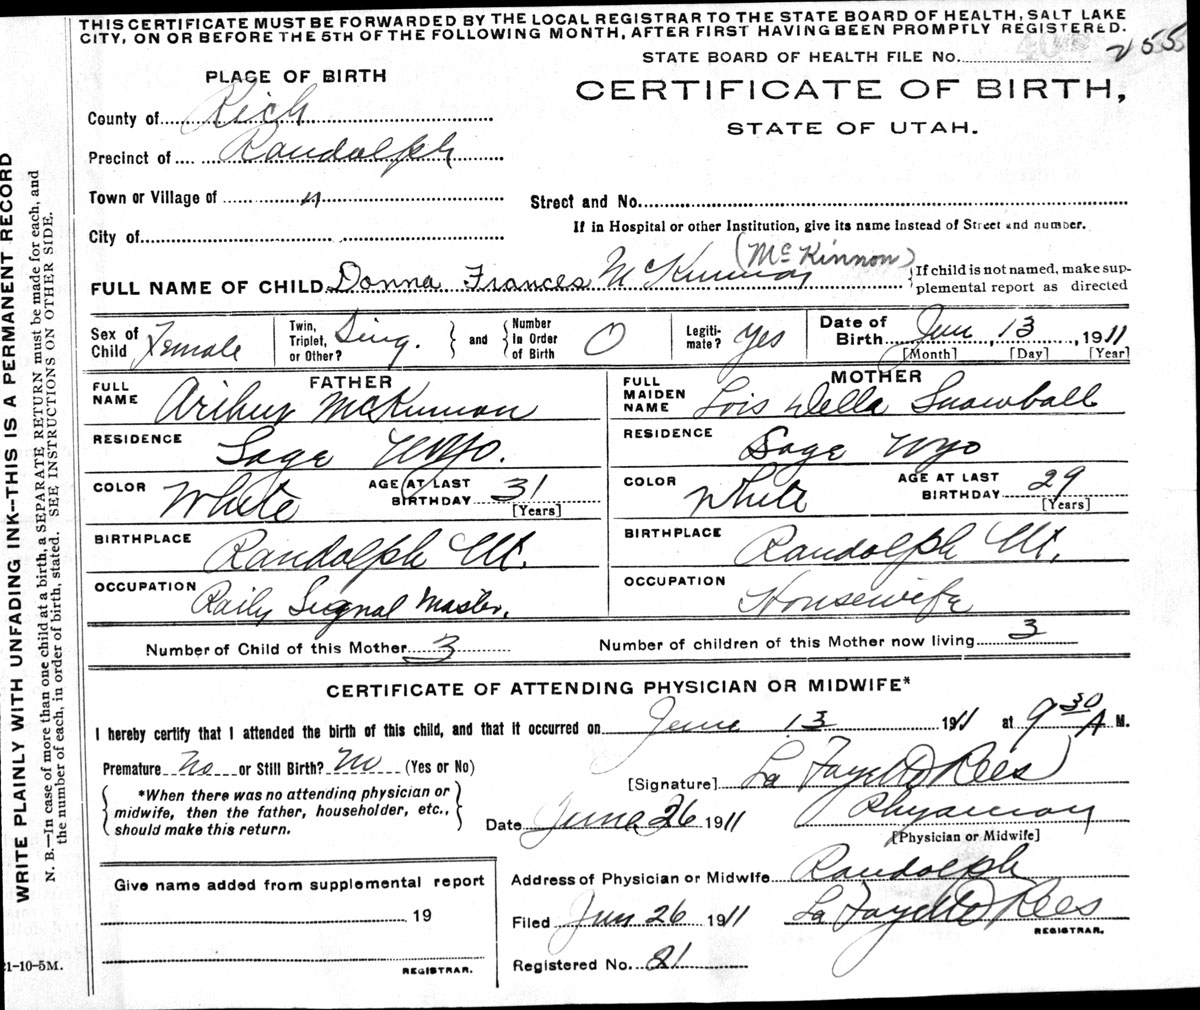 THIS CERTIFICATE MUST BE FORWARDED BY THE LOCAL REGISTRAR TO THE STATE BOARD OF HEALTH, SALT LAKE
CITY, ON OR BEFORE THE 5TH OF THE FOLLOWING MONTH, AFTER FIRST HAVING BEEN PROMPTLY REGISTERED.
STATE BOARD OF HEALTH FILE No. 255
PLACE OF BIRTH
CERTIFICATE OF BIRTH,
STATE OF UTAH.
County of Rich
Precinct of Randolph
Town or Village of "
Street and No.
If in Hospital or other Institution, give its name instead of Street and number.
City of
(McKinnon)
FULL NAME OF CHILD Donna Frances McKinnon
If child is not named, make sup-
plemental report as directed
Sex of Child Female
Twin, Triplet, or Other? Sing.
and
Number In Order of Birth 0
Legiti-mate? Yes
Date of Birth Jun 13, 1911
[Month] [Day] [Year]
FATHER
FULL NAME Arthur McKinnon
RESIDENCE Sage Wyo.
COLOR White
AGE AT LAST BIRTHDAY 31
[Years]
BIRTHPLACE Randolph Ut.
OCCUPATION Raily Signal Master.
MOTHER
FULL MAIDEN NAME Lois Della Snowball
RESIDENCE Sage Wyo
COLOR White
AGE AT LAST BIRTHDAY 29
[Years]
BIRTHPLACE Randolph Ut.
OCCUPATION Housewife
Number of Child of this Mother 3
Number of children of this Mother now living 3
CERTIFICATE OF ATTENDING PHYSICIAN OR MIDWIFE*
I hereby certify that I attended the birth of this child, and that it occurred on June 13 1911 at 9 30 A M.
Premature No or Still Birth? No (Yes or No)
[Signature] La Fayette D Rees
*When there was no attending physician or
midwife, then the father, householder, etc.,
should make this return.
Date June 26 1911
Physician
[Physician or Midwife]
Give name added from supplemental report
19
REGISTRAR.
Address of Physician or Midwife Randolph
Filed Jun 26 1911 La Fayette D Rees
REGISTRAR.
Registered No. 21
21-10-5M.
WRITE PLAINLY WITH UNFADING INK--THIS IS A PERMANENT RECORD
N. B.—In case of more than one child at a birth, a SEPARATE RETURN must be made for each, and
the number of each, in order of birth, stated. SEE INSTRUCTIONS ON OTHER SIDE.